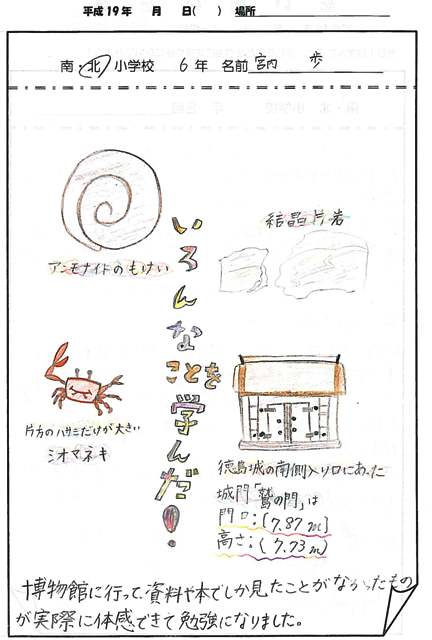 平成19年　月　日(　)　場所
南・北 小学校　6年　名前 宮内 歩
アンモナイトのもけい
結晶片岩
いろんなことを学んだ!
片方のハサミだけが大きい
シオマネキ
徳島城の南側入り口にあった
城門「鷲の門」は
門口:(7.87m)
高さ:(7.73m)
博物館に行って、資料や本でしか見たことがなかったもの
が実際に体感できて勉強になりました。